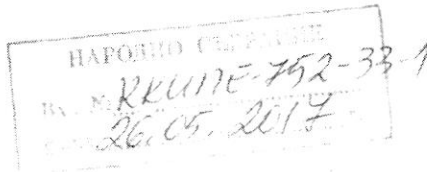 НАРОДНО СЪБРАНИЕ
Вх. № ККИПЕ-752-33-1
26.05. 2017